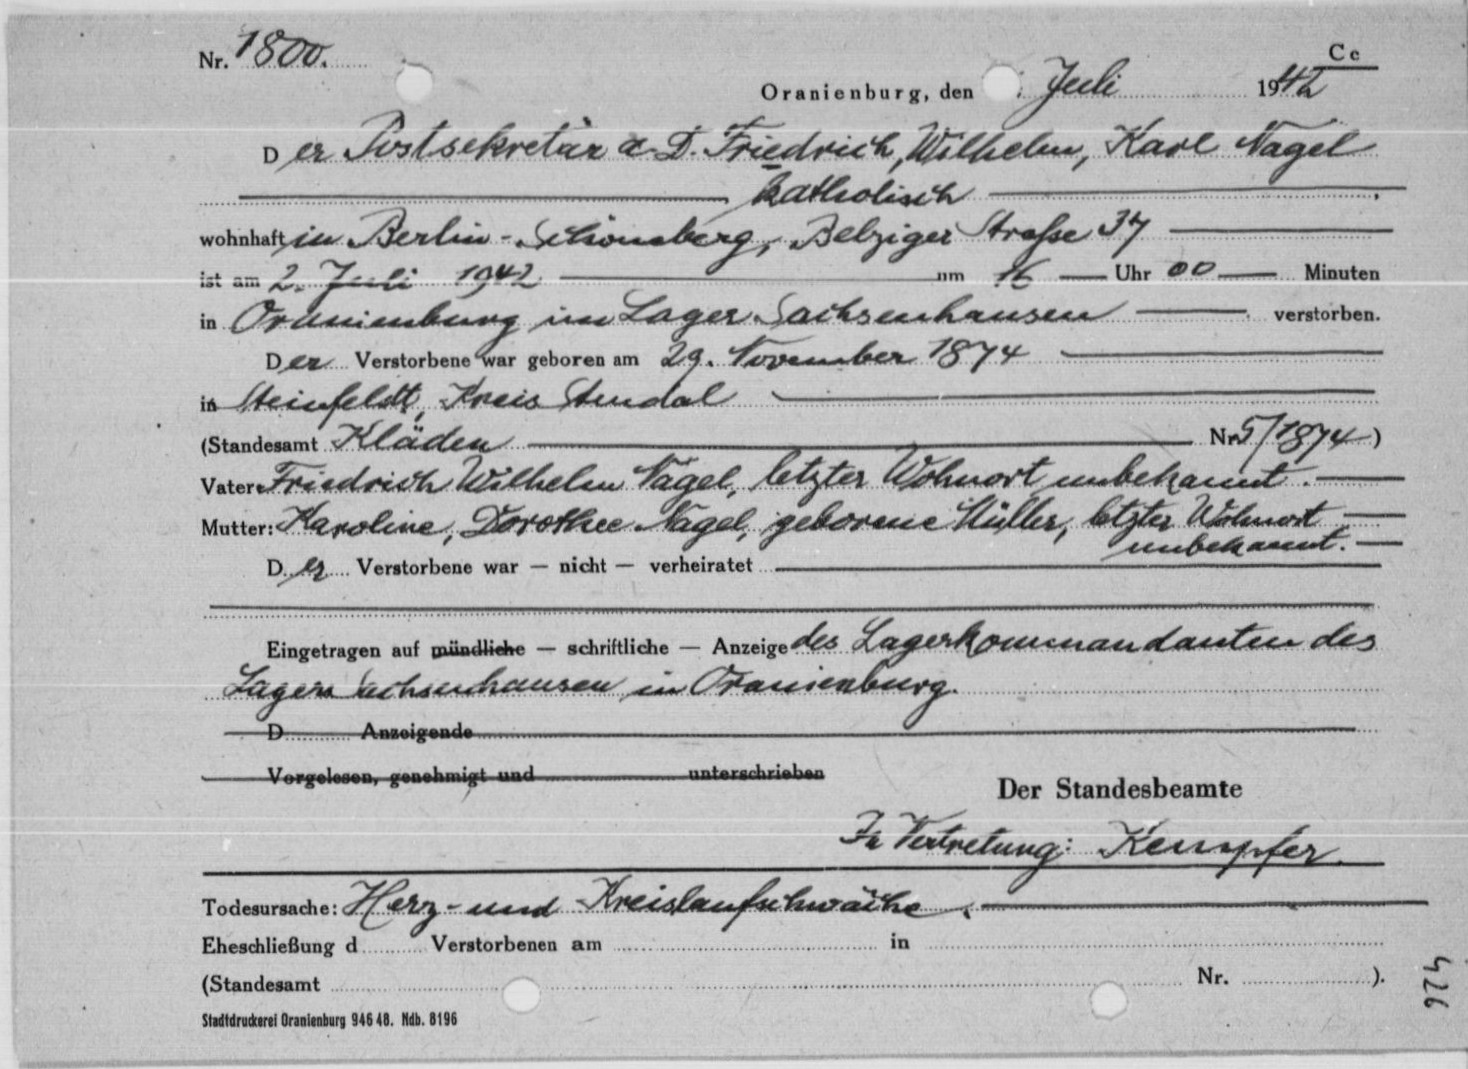 Nr. 1800.
Cc
Oranienburg, den Juli 1942
Der Postsekretär a. D. Friedrich, Wilhelm, Karl Nagel
katholisch
wohnhaft in Berlin-Schöneberg, Belziger Straße 37
ist am 2. Juli 1942 um 16 Uhr 00 Minuten
in Oranienburg im Lager Sachsenhausen verstorben.
Der Verstorbene war geboren am 29. November 1874
in Steinfeldt, Kreis Stendal
(Standesamt Kläden Nr. 5/1874)
Vater: Friedrich Wilhelm Nagel, letzter Wohnort unbekannt.
Mutter: Karoline, Dorothee Nagel, geborene Müller, letzter Wohnort
unbekannt.
Der Verstorbene war — nicht — verheiratet
Eingetragen auf mündliche — schriftliche — Anzeige des Lagerkommandanten des
Lagers Sachsenhausen in Oranienburg.
D Anzeigende
Vorgelesen, genehmigt und unterschrieben
Der Standesbeamte
In Vertretung: Kempfer.
Todesursache: Herz- und Kreislaufschwäche.
Eheschließung d Verstorbenen am in
(Standesamt Nr. ).
Stadtdruckerei Oranienburg 946 48. Ndb. 8196
426